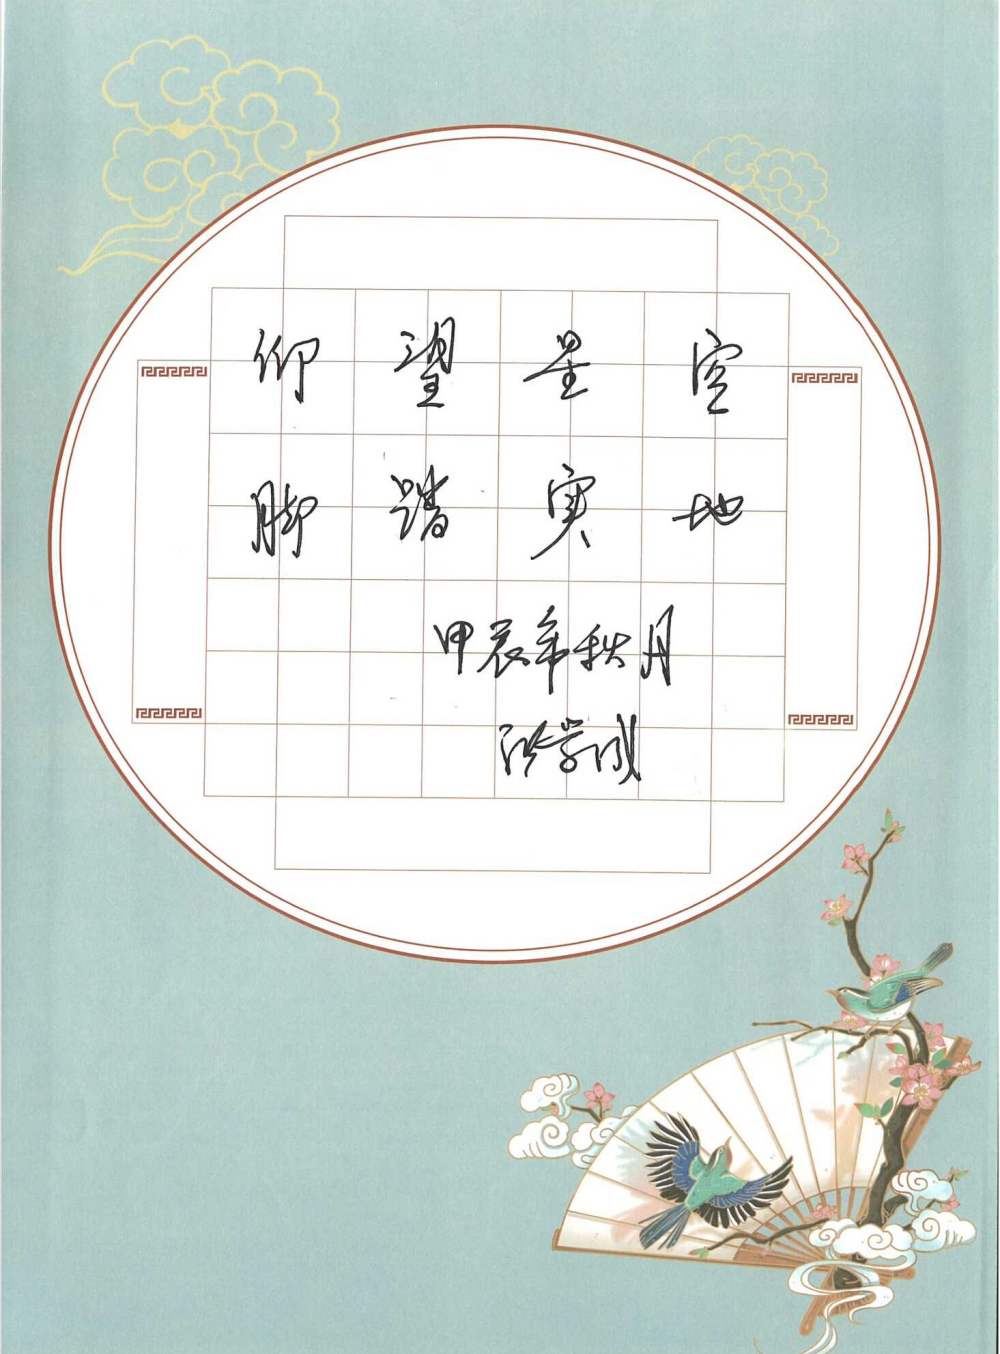 仰望星空
脚踏实地
甲辰年秋月
学成